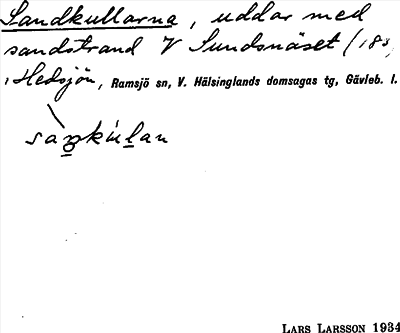 Sandkullarna, uddar med
sandstrand V Sundsnäset (183,
i Hedsjön, Ramsjö sn, V. Hälsinglands domsagas tg, Gävleb. l.
saŋkulan
LARS LARSSON 1934